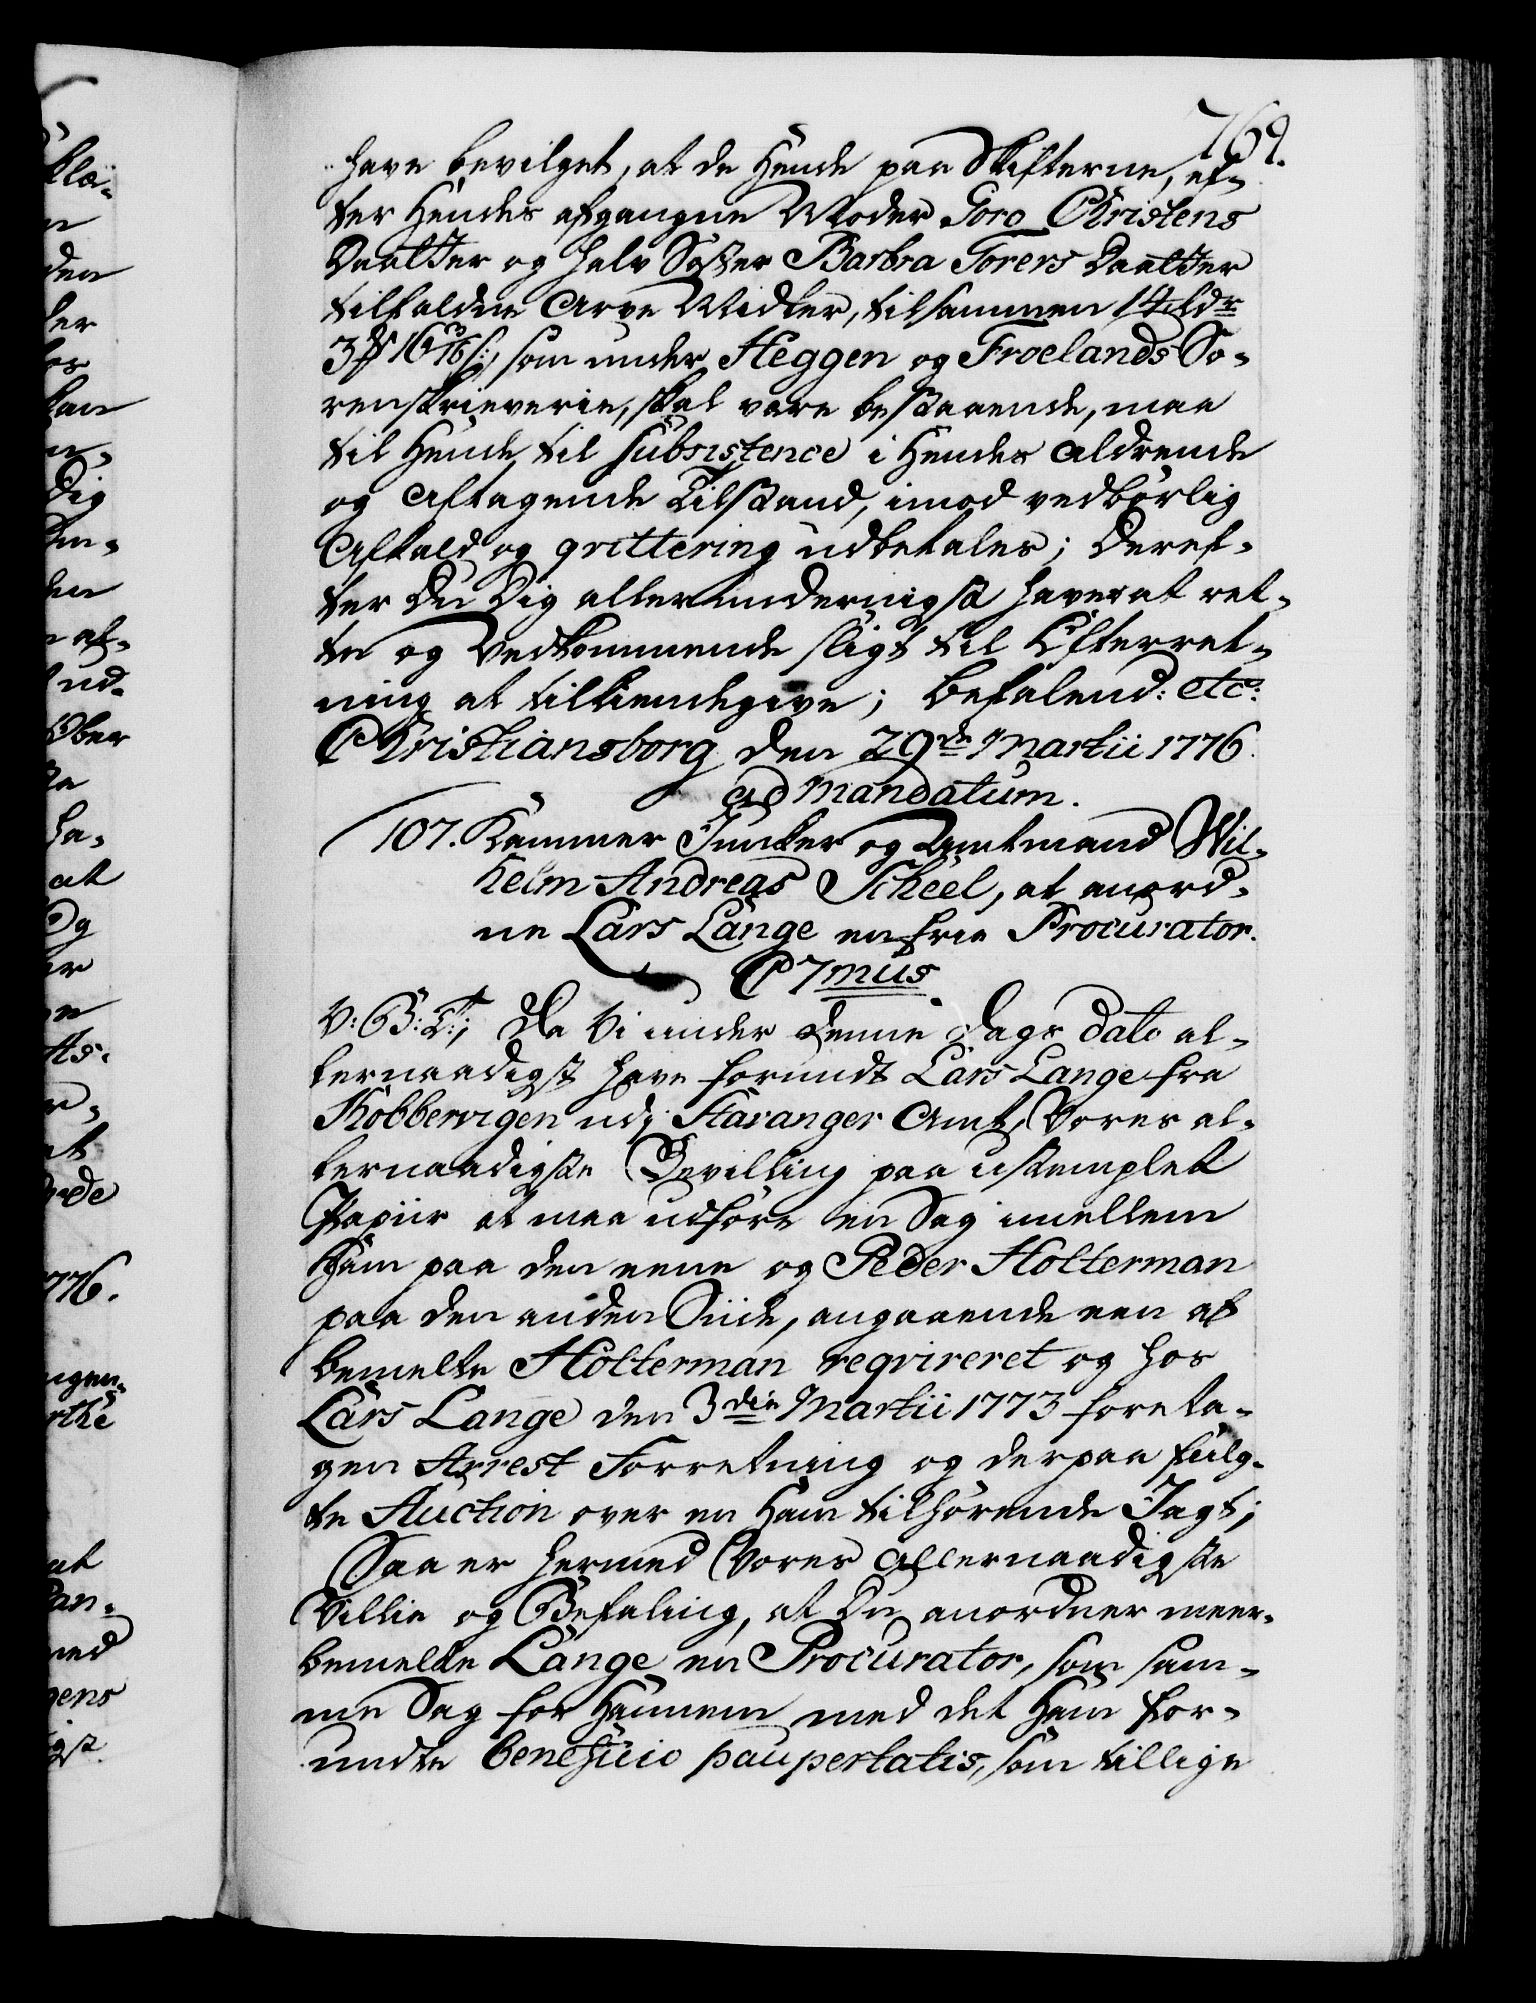 769.
have bevilget, at de Hende paa Skifterne, ef-
ter Hendes afgangne Moder Goro Christens
Daatter og halv Søster Barbra Torers Daatter
tilfaldne Arve Midler, tilsammen 14 rdr
3 16 s:, som under Heggen og Froelands So-
renskrieverie, skal være bestaaende, maa
til Hende til subsistence i Hendes aldrende
og aftagende Tilstand, imod vedbørlig
Afkald og qvittering udbetales; Deref-
ter Du Dig allerunderdanigst haver at ret-
te og Vedkommende sligt til Efterret-
ning at tilkiendegive; Befalend: etc:
Christiansborg den 29de Martii 1776.
ad Mandatum.
107. Kammer Juncker og Amtmand Wil-
helm Andreas Scheel, at anord-
ne Lars Lange en frie Procurator.
C 7mus
V: G: T:; Da Vi under Denne Dags Dato al-
lernaadigst have forundt Lars Lange fra
Kobbervigen udj Stavanger Amt, Vores al-
lernaadigste Bevilling paa ustemplet
Papiir at maa udføre en Sag imellem
Ham paa den eene og Peder Holterman
paa den anden Siide, angaaende een af
bemelte Holterman reqvireret og hos
Lars Lange den 3die Martii 1773 foreta-
gen Arrest Forretning og derpaa fulg-
te Auction over en Ham tilhørende Jagt;
Saa er hermed Vores allernaadigste
Villie og Befaling, at Du anordner meer-
bemelte Lange en Procurator, som sam-
me Sag for Hannem med det Ham for-
undte beneficio paupertatis, som tillige